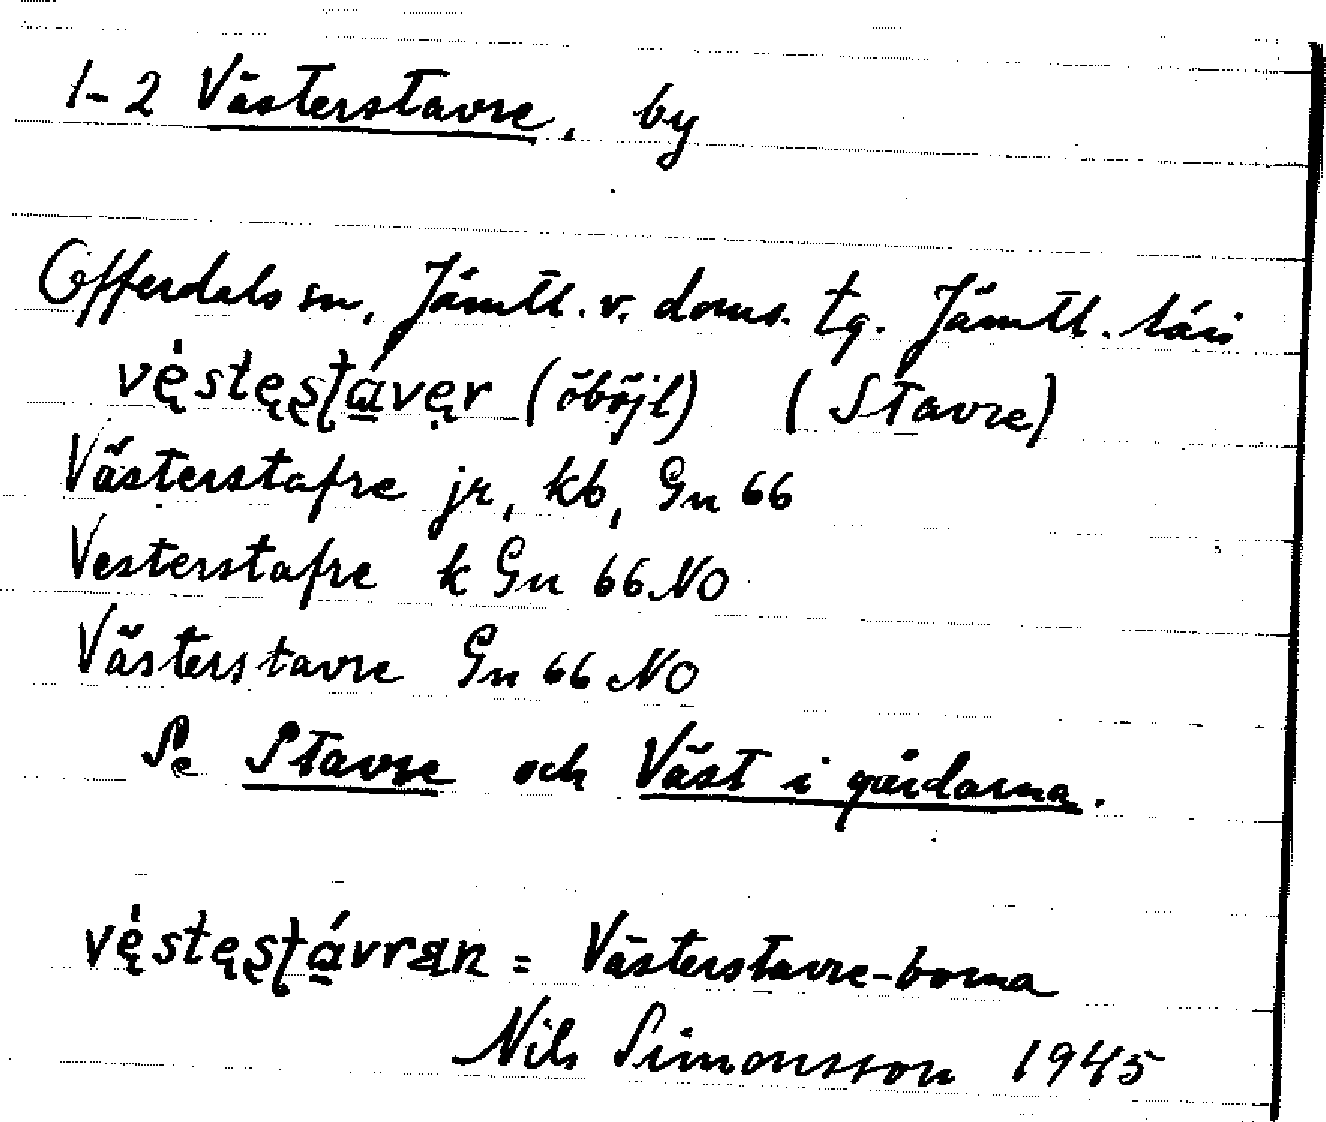 1-2 Västerstavre, by
Offerdals sn, Jämtl. v. doms. tg. Jämtl. län
vę́stęʂʈáver (oböjl) (Stavre)
Västerstafre jr, kb, Gn 66
Vesterstafre k Gn 66 NO
Västerstavre Gn 66 NO
Se Stavre och Väst i gårdarna.
vę́stęʂʈávran = Västerstavre-borna
Nils Simonsson 1945